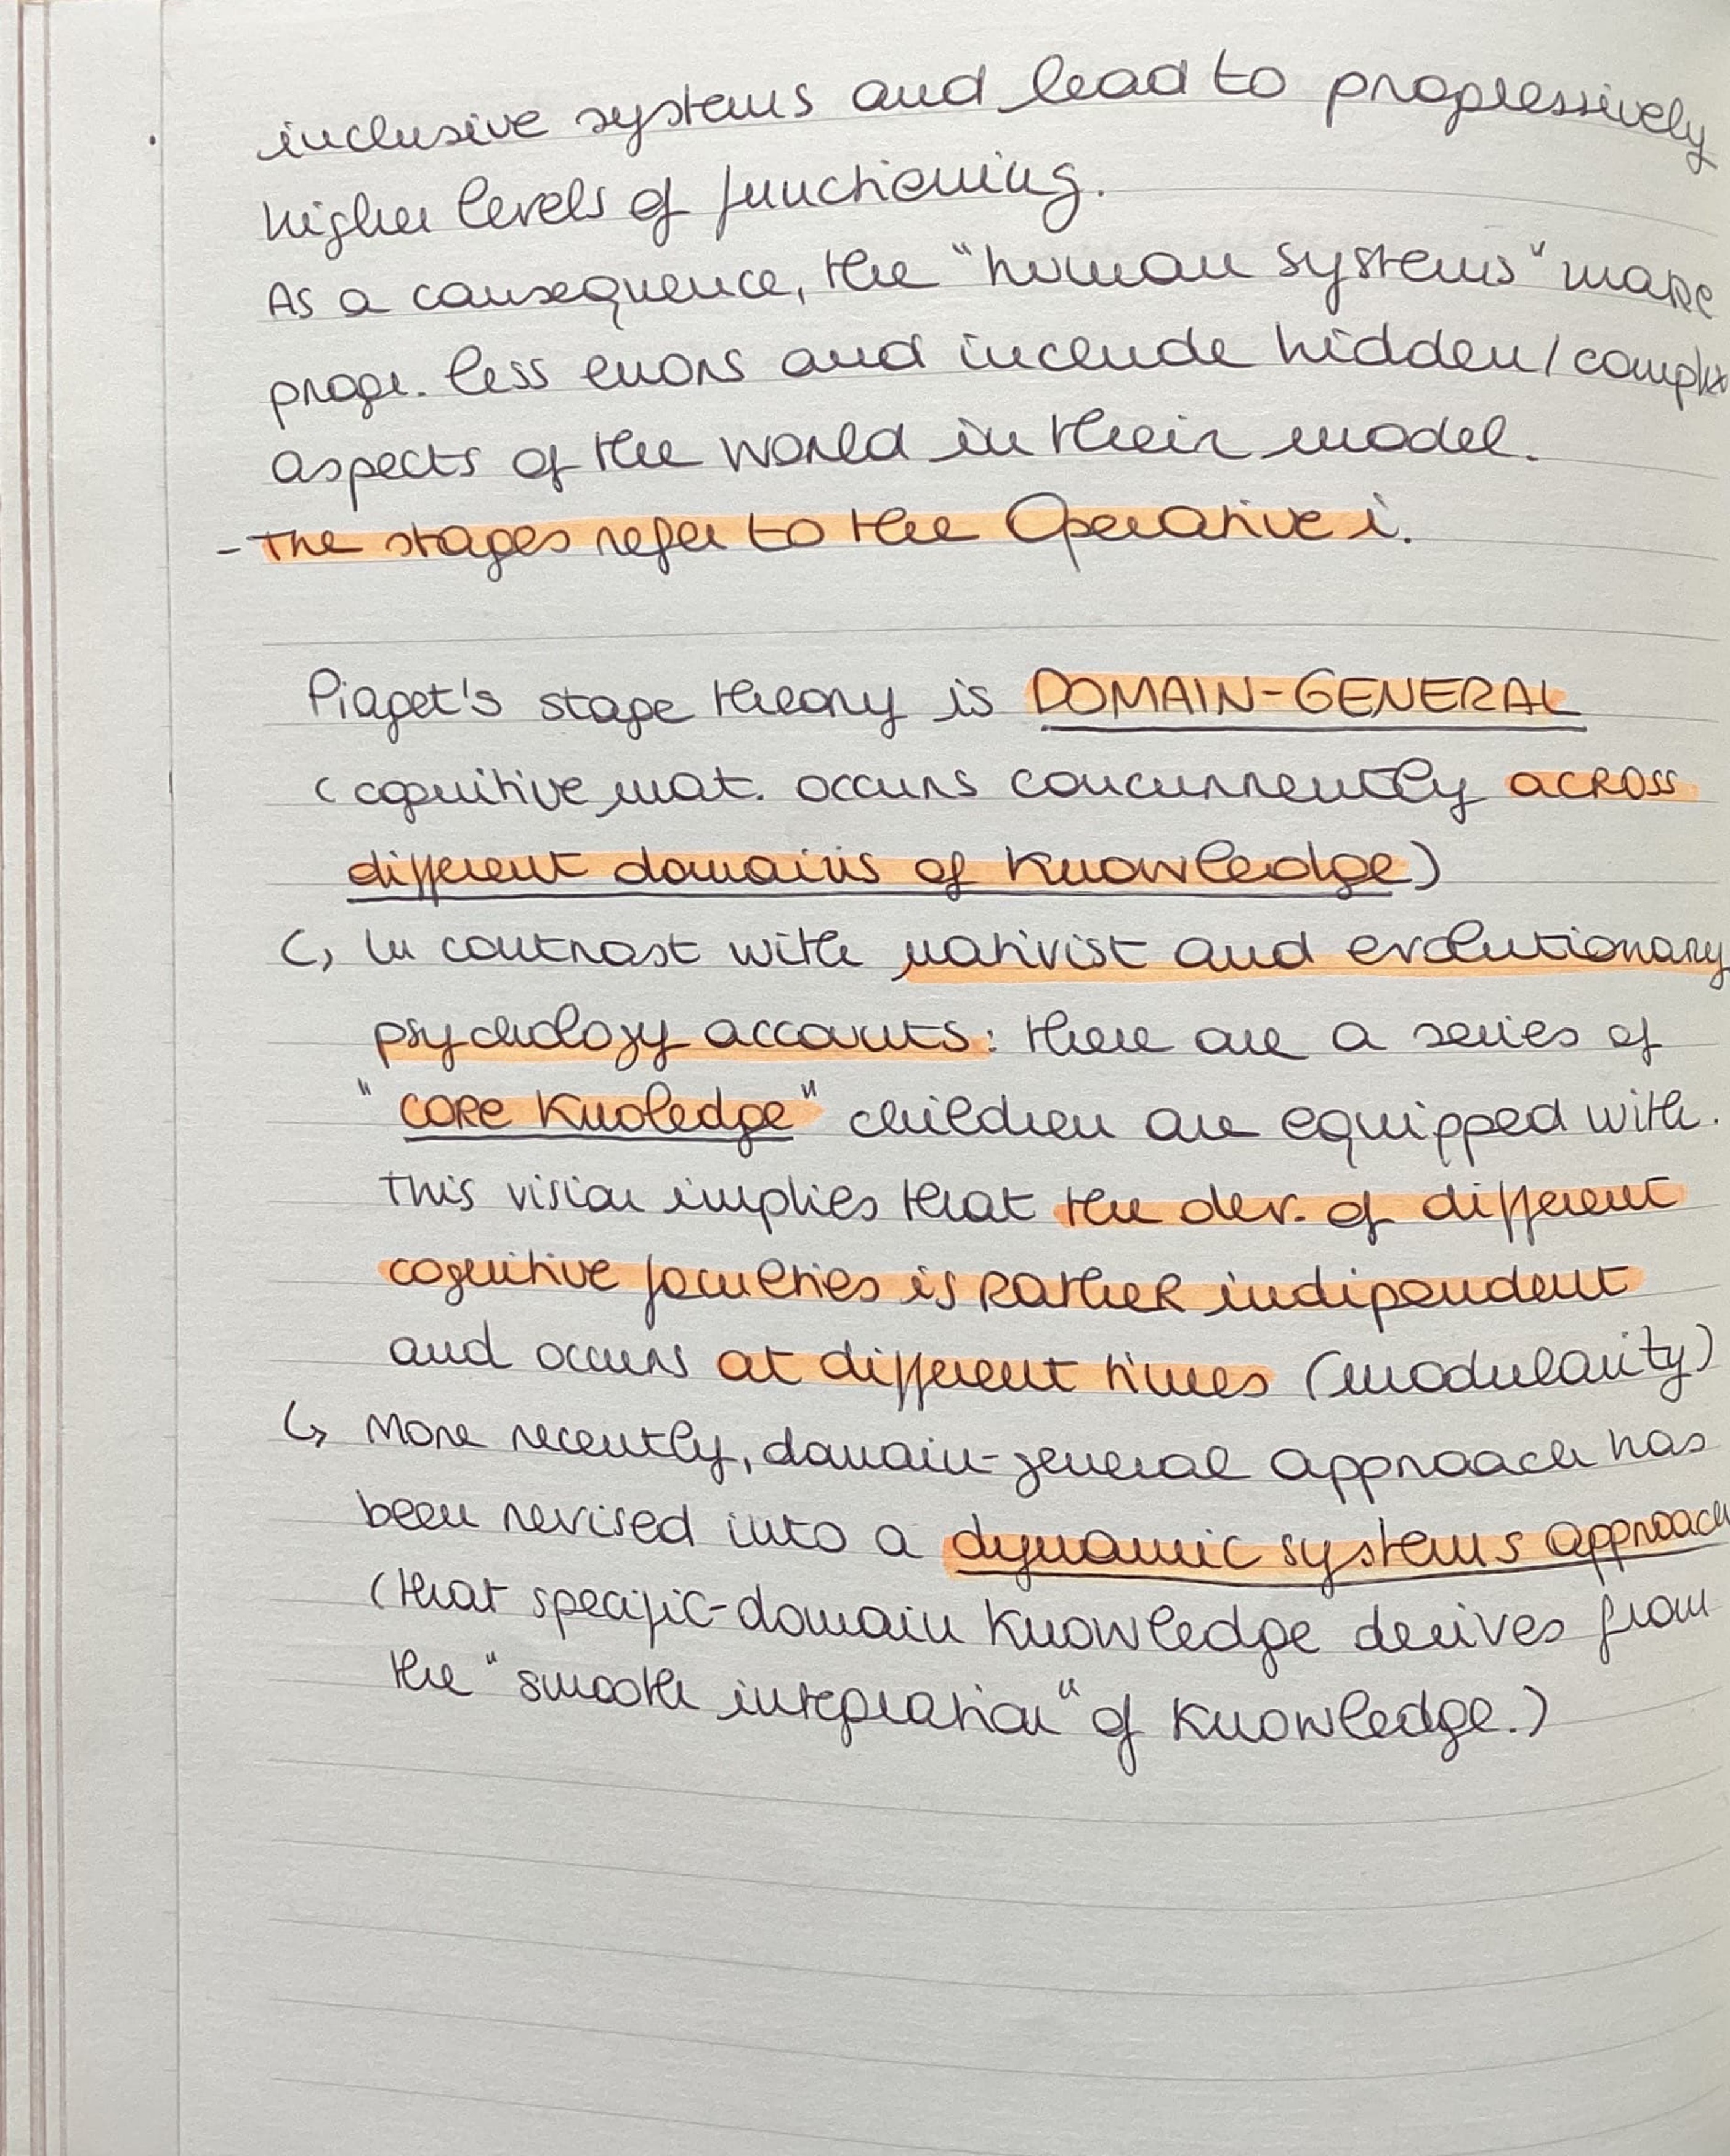 inclusive systems and lead to progressively
higher levels of functioning.
As a consequence, the "human systems" make
progr. less errors and include hidden/complex
aspects of the world in their model.
- The stages refer to the Operative i.
Piaget's stage theory is DOMAIN-GENERAL
(cognitive mat. occurs concurrently across
different domains of knowledge)
↳ In contrast with nativist and evolutionary
psychology accounts: there are a series of
"core knoledge" children are equipped with.
This vision implies that the dev. of different
cognitive faculties is rather indipendent
and occurs at different times (modularity)
↳ More recently, domain-general approach has
been revised into a dynamic systems approach
(that specific-domain knowledge derives from
the "smooth integration" of knowledge.)